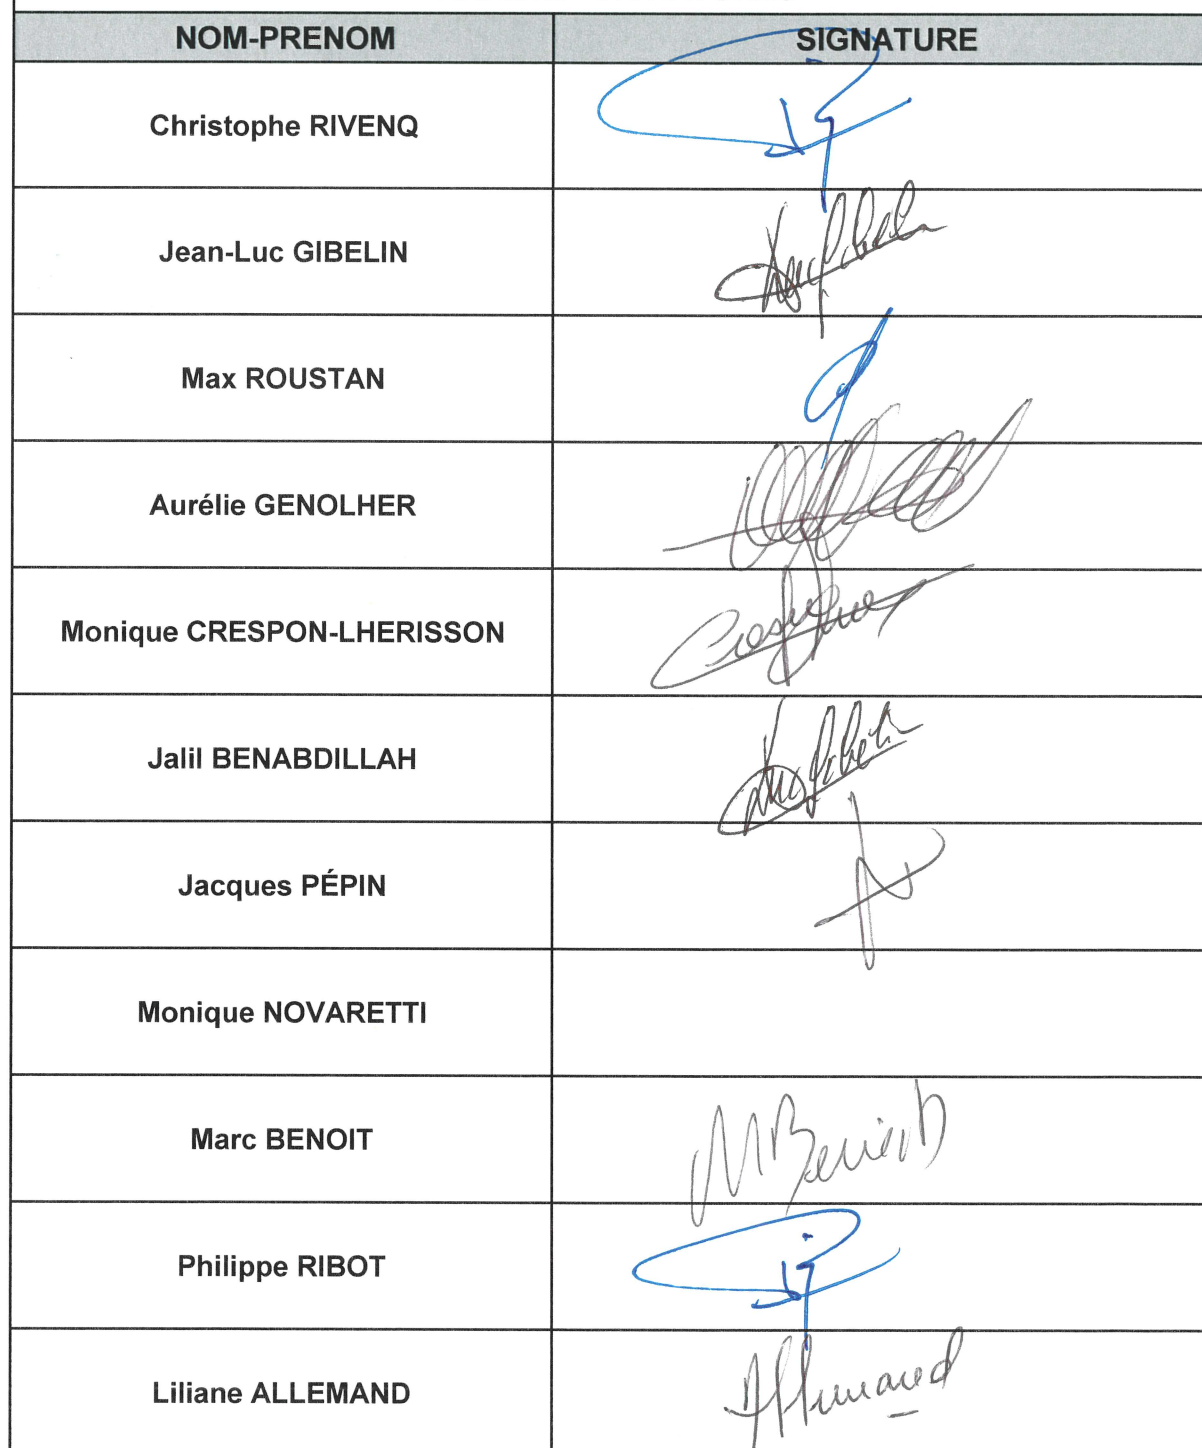 NOM-PRENOM SIGNATURE
Christophe RIVENQ
Jean-Luc GIBELIN
Max ROUSTAN
Aurélie GENOLHER
Monique CRESPON-LHERISSON
Jalil BENABDILLAH
Jacques PÉPIN
Monique NOVARETTI
Marc BENOIT MBenoit
Philippe RIBOT
Liliane ALLEMAND Allemand